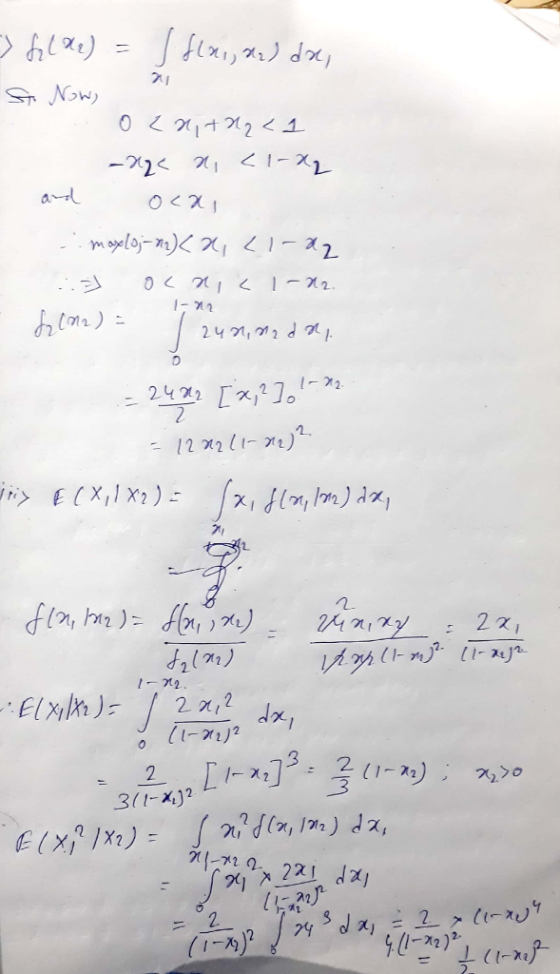 > f₂(x₂) = ∫_{x₁} f(x₁, x₂) dx₁
Now,
0 < x₁ + x₂ < 1
-x₂ < x₁ < 1 - x₂
and 0 < x₁
∴ max(0, -x₂) < x₁ < 1 - x₂
∴ ⇒ 0 < x₁ < 1 - x₂.
f₂(x₂) = ∫₀^{1-x₂} 24 x₁ x₂ d x₁.
= 24x₂/2 [x₁²]₀^{1-x₂}
= 12 x₂ (1 - x₂)².
iii> E(X₁|X₂) = ∫_{x₁} x₁ f(x₁|x₂) dx₁
f(x₁|x₂) = f(x₁, x₂)/f₂(x₂) = 24 x₁x₂/12 x₂ (1-x₂)² = 2x₁/(1-x₂)²
∴ E(X₁|X₂) = ∫₀^{1-x₂} 2x₁²/(1-x₂)² dx₁
= 2/3(1-x₂)² [1-x₂]³ = 2/3 (1-x₂) ; x₂>0
E(X₁²|X₂) = ∫_{x₁} x₁² f(x₁|x₂) dx₁
= ∫₀^{1-x₂} x₁² × 2x₁/(1-x₂)² dx₁
= 2/(1-x₂)² ∫₀^{1-x₂} x₁³ dx₁ = 2/4(1-x₂)² × (1-x₂)⁴
= 1/2 (1-x₂)²